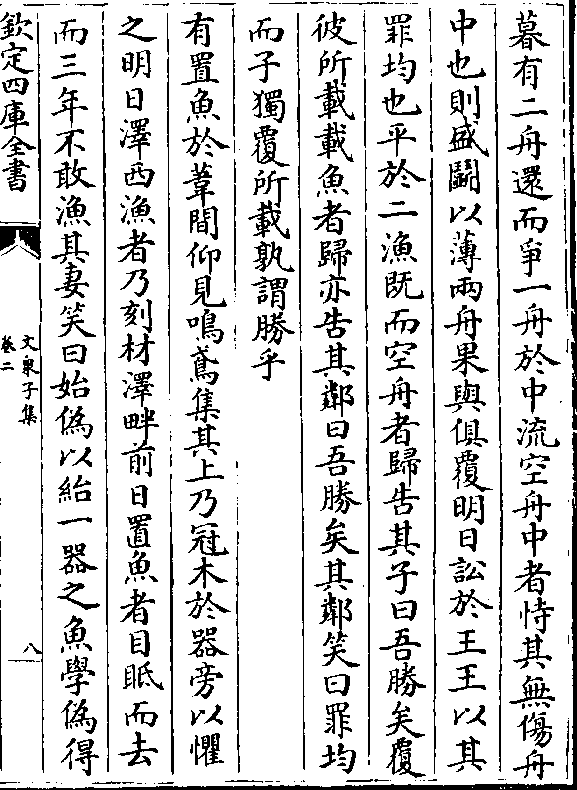 暮有二舟還而爭一舟於中流空舟中者恃其無傷舟
中也則盛鬭以薄兩舟果與俱覆明日訟於王王以其
罪均也平於二漁既而空舟者歸告其子曰吾勝矣覆
彼所載載魚者歸亦告其鄰曰吾勝矣其鄰笑曰罪均
而子獨覆所載孰謂勝乎
有置魚於葦間仰見鳴鳶集其上乃冠木於器旁以懼
之明日澤西漁者乃刻材澤畔前日置魚者目眡而去
而三年不敢漁其妻笑曰始偽以紿一器之魚學偽得
欽定四庫全書
文泉子集
卷二
八